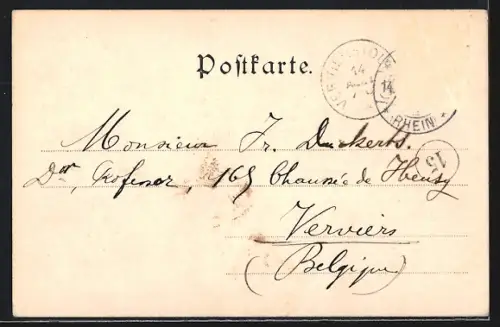 Postkarte.
14
14
RHEIN
15
Monsieur Fr. Duckerts.
Dor, Professor, 165 Chaussée de Heusy
Verviers
(Belgique)